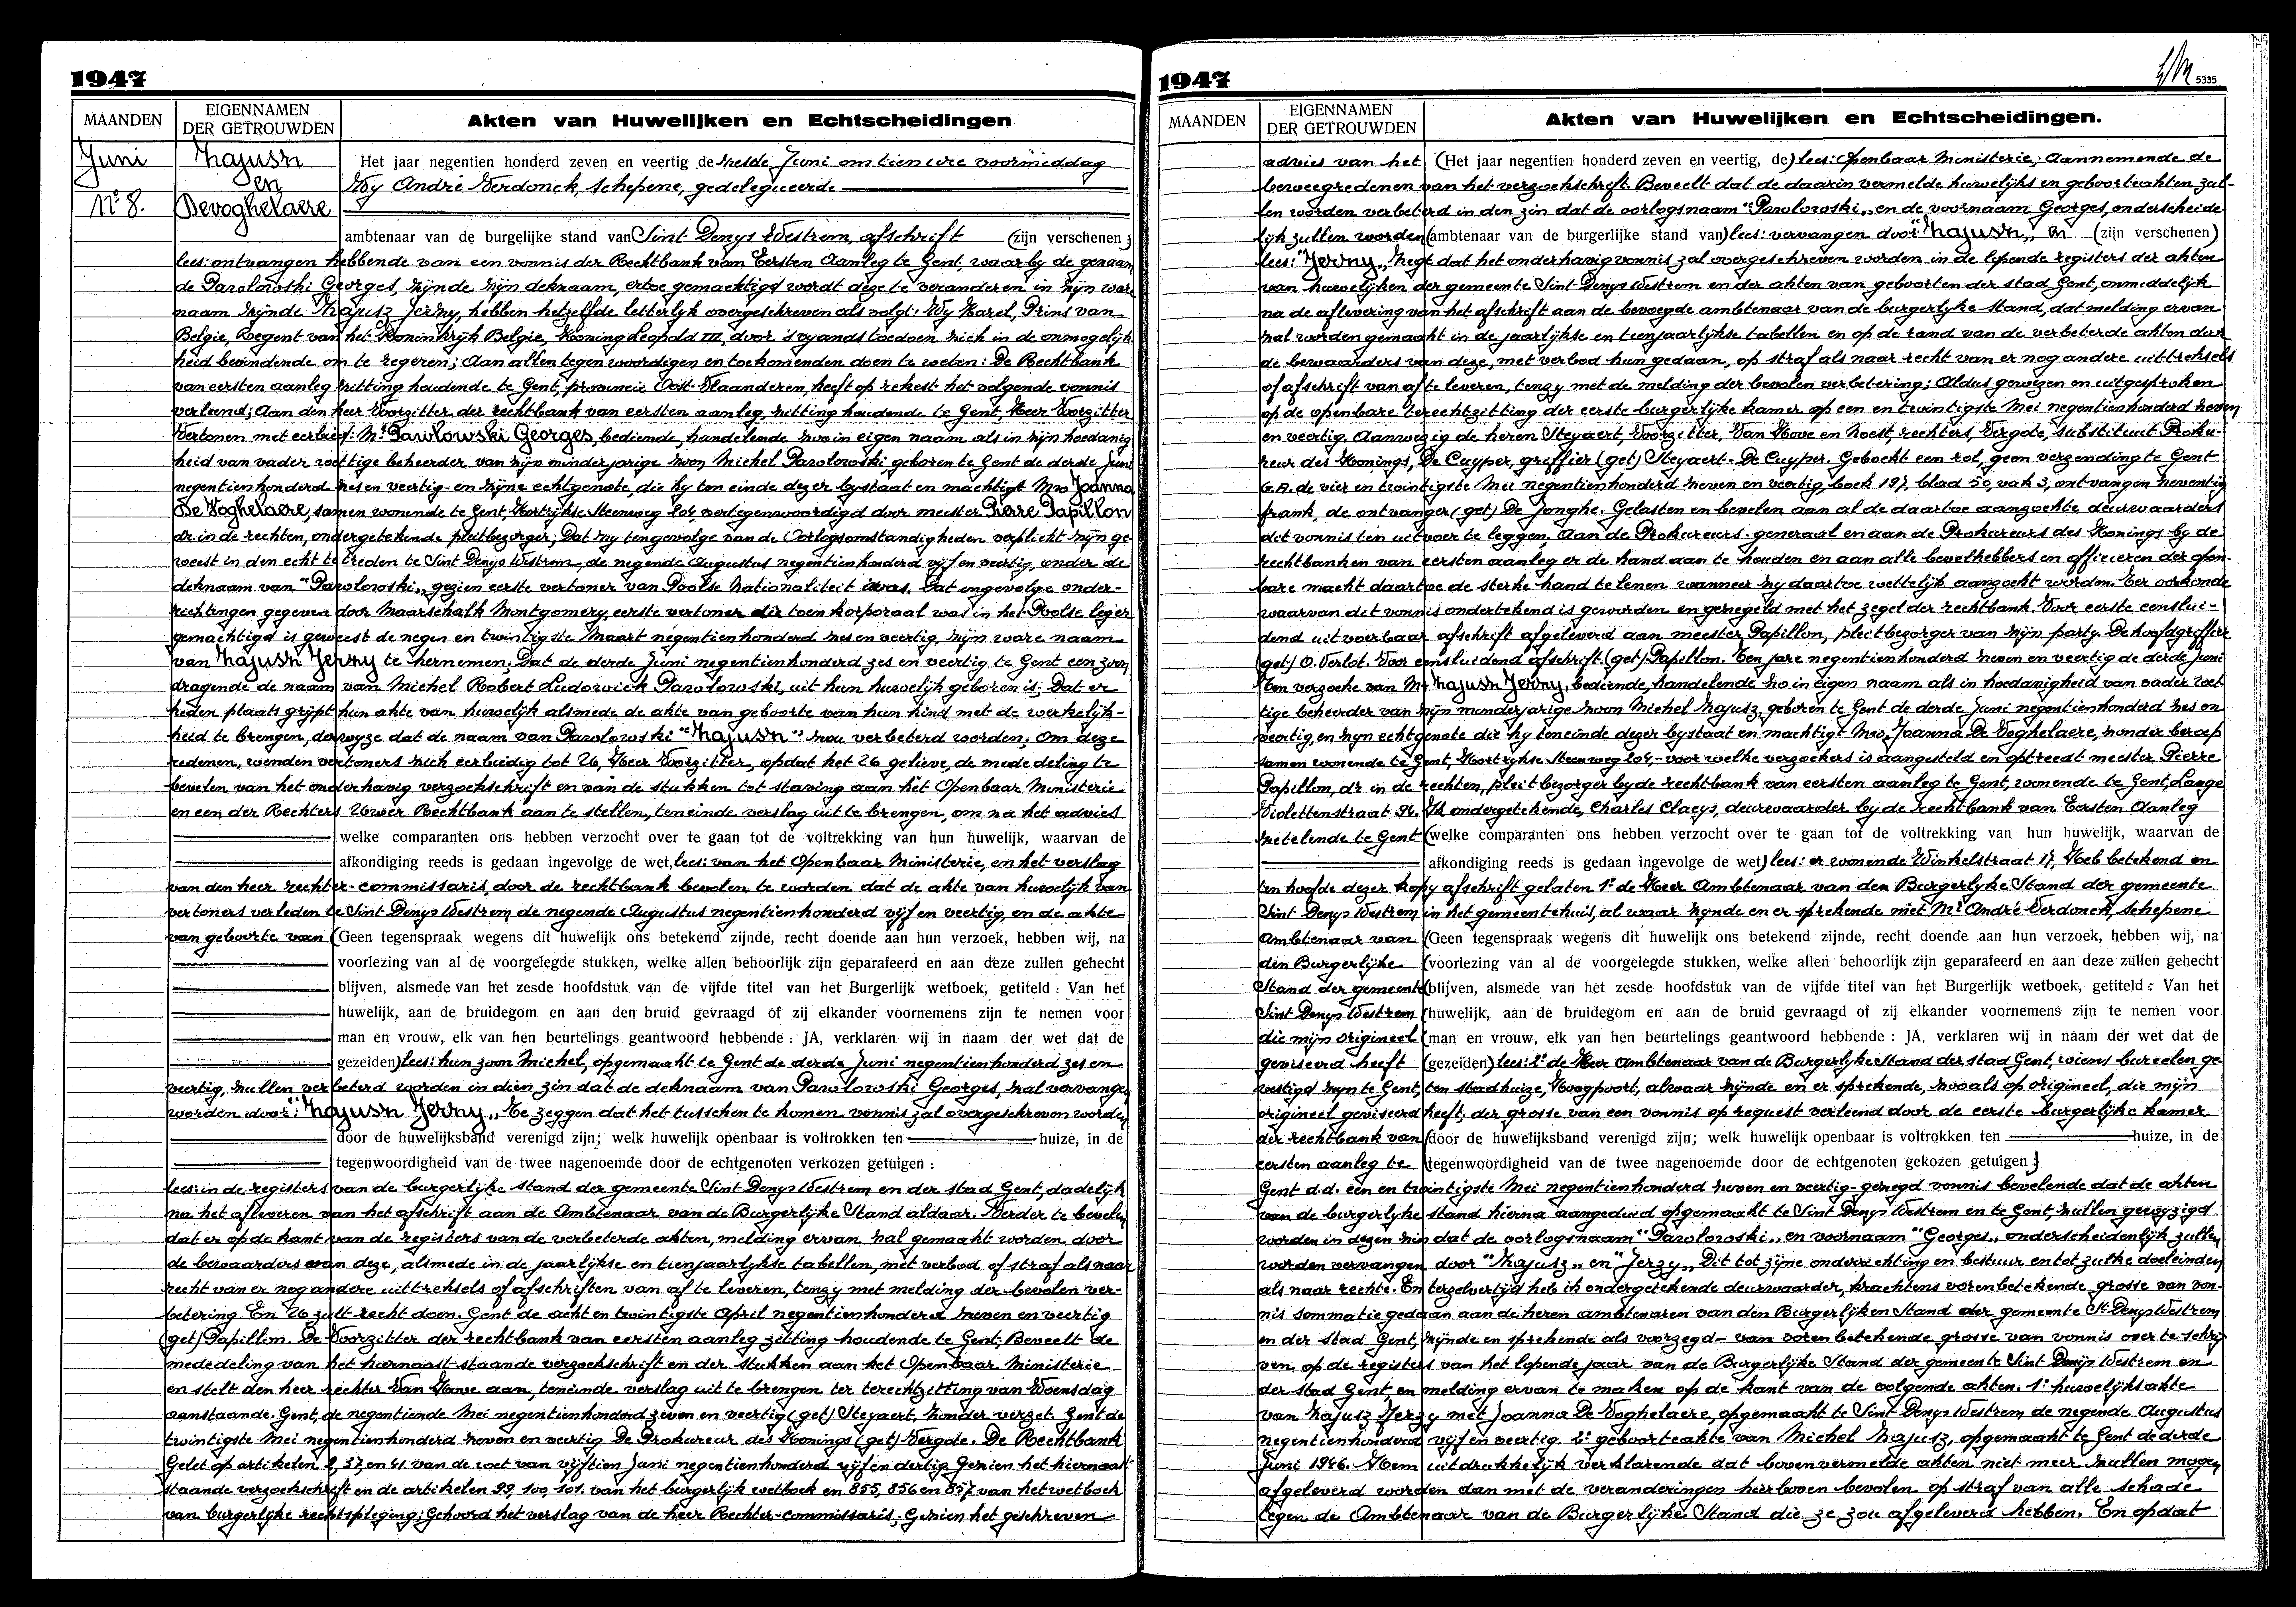 1947
MAANDEN
EIGENNAMEN
DER GETROUWDEN
Akten van Huwelijken en Echtscheidingen
Juni
Nº 8.
Zajusz
en
Devoghelaere
Het jaar negentien honderd zeven en veertig de zesde Juni om tien ure voormiddag
Wy André Verdonck, schepene, gedelegueerde
ambtenaar van de burgelijke stand van Sint Denys Westrem, afschrift (zijn verschenen)
lees: ontvangen hebbende van een vonnis der Rechtbank van Eersten Aanleg te Gent, waarby de genaam
de Pawlowski Georges, zijnde zijn deknaam, ertoe gemachtigd wordt deze te veranderen in zijn ware
naam zijnde Zajusz Jerzy, hebben hetzelfde letterlyk overgeschreven als volgt: Wy Karel, Prins van
Belgie, Regent van het Koninkrijk Belgie, Koning Leopold III, door 's vyands toedoen zich in de onmogelijk
heid bevindende om te regeren; Aan allen tegenwoordigen en toekomenden doen te weten: De Rechtbank
van eersten aanleg zitting houdende te Gent, provincie Oost Vlaanderen, heeft op rekest het volgende vonnis
verleend; Aan den heer Voorzitter der rechtbank van eersten aanleg, zitting houdende te Gent, Heer Voorzitter
Vertonen met eerbied: Mr Pawlowski Georges, bediende, handelende zoo in eigen naam als in zijn hoedanig
heid van vader wettige beheerder van zijn minderjarige zoon Michel Pawlowski geboren te Gent de derde Juni
negentienhonderd zes en veertig - en zijne echtgenote, die hy ten einde dezer bystaat en machtigt Mw Joanna
De Voghelaere, samen wonende te Gent, Kortrijkse Steenweg 204, vertegenwoordigd door meester Pierre Papillon
dr. in de rechten, ondergetekende pleitbezorger; Dat zy tengevolge van de Oorlogsomstandigheden verplicht zijn ge
weest in den echt te treden te Sint Denys Westrem, de negende Augustus negentienhonderd vijf en veertig, onder de
deknaam van "Pawlowski" gezien eerste vertoner van Poolse Nationaliteit was. Dat ingevolge onder-
richtingen gegeven door Maarschalk Montgomery, eerste vertoner die toen korporaal was in het Poolse leger
gemachtigd is geweest de negen en twintigste Maart negentienhonderd zes en veertig, zijn ware naam
van Zajusz Jerzy te hernemen. Dat de derde Juni negentienhonderd zes en veertig te Gent een zoon,
dragende de naam van Michel Robert Ludowick Pawlowski, uit hun huwelijk geboren is. Dat er
heden plaats grijpt hun akte van huwelijk alsmede de akte van geboorte van hun kind met de werkelijk-
heid te brengen, derwyze dat de naam van Pawlowski "Zajusz" zou verbeterd worden. Om deze
redenen, wenden vertoners zich eerbiedig tot U, Heer Voorzitter, opdat het U gelieve, de mededeling te
bevelen van het onderhavig verzoekschrift en van de stukken tot staving aan het Openbaar Ministerie
en een der Rechters Uwer Rechtbank aan te stellen, teneinde verslag uit te brengen, om na het advies
welke comparanten ons hebben verzocht over te gaan tot de voltrekking van hun huwelijk, waarvan de
afkondiging reeds is gedaan ingevolge de wet, lees: van het Openbaar Ministerie, en het verslag
van den heer rechter-commissaris, door de rechtbank bevolen te worden dat de akte van huwelijk van
vertoners verleden te Sint Denys Westrem de negende Augustus negentienhonderd vijf en veertig, en de akte
van geboorte van (Geen tegenspraak wegens dit huwelijk ons betekend zijnde, recht doende aan hun verzoek, hebben wij, na
voorlezing van al de voorgelegde stukken, welke allen behoorlijk zijn geparafeerd en aan deze zullen gehecht
blijven, alsmede van het zesde hoofdstuk van de vijfde titel van het Burgerlijk wetboek, getiteld : Van het
huwelijk, aan de bruidegom en aan den bruid gevraagd of zij elkander voornemens zijn te nemen voor
man en vrouw, elk van hen beurtelings geantwoord hebbende : JA, verklaren wij in naam der wet dat de
gezeiden) lees: hun zoon Michel, opgemaakt te Gent de derde Juni negentienhonderd zes en
veertig, zullen verbeterd worden in dien zin dat de deknaam van Pawlowski Georges, zal vervangen
worden door: "Zajusz Jerzy" Te zeggen dat het tusschen te komen vonnis zal overgeschreven worden,
door de huwelijksband verenigd zijn; welk huwelijk openbaar is voltrokken ten huize, in de
tegenwoordigheid van de twee nagenoemde door de echtgenoten verkozen getuigen :
lees: in de registers van de burgerlijke stand der gemeente Sint Denys Westrem en der stad Gent, dadelijk
na het afleveren van het afschrift aan de Ambtenaar van de Burgerlijke Stand aldaar. Verder te bevelen
dat er op de kant van de registers van de verbeterde akten, melding ervan zal gemaakt worden door
de bewaarders van deze, alsmede in de jaarlijkse en tienjaarlykse tabellen, met verbod of straf als naar
recht van er nog andere uittreksels of afschriften van af te leveren, tenzy met melding der bevolen ver-
betering. En U zult recht doen. Gent de acht en twintigste April negentienhonderd zeven en veertig
(get) Papillon. De Voorzitter der rechtbank van eersten aanleg zitting houdende te Gent; Beveelt de
mededeling van het hiernaast staande verzoekschrift en der stukken aan het Openbaar Ministerie
en stelt den heer rechter Van Hove aan, teneinde verslag uit te brengen ter terechtzitting van Woensdag
aanstaande. Gent, de negentiende Mei negentienhonderd zeven en veertig (get) Steyaert. Zonder verzet. Gent de
twintigste Mei negentienhonderd zeven en veertig De Prokureur des Konings (get) Vergote. De Rechtbank
Gelet op artikelen 2, 37, en 41 van de wet van vijftien Juni negentienhonderd vijf en dertig Gezien het hiernaast
staande verzoekschrift en de artikelen 99, 100, 101. van het burgerlijk wetboek en 855, 856 en 857 van het wetboek
van burgerlyke rechtspleging; Gehoord het verslag van de heer Rechter-commissaris; Gezien het geschreven
1947
5335
MAANDEN
EIGENNAMEN
DER GETROUWDEN
Akten van Huwelijken en Echtscheidingen.
advies van het (Het jaar negentien honderd zeven en veertig, de) lees: Openbaar Ministerie; Aannemende de
beweegredenen van het verzoekschrift. Beveelt dat de daarin vermelde huwelijks en geboorteakten zul-
len worden verbeterd in den zin dat de oorlogsnaam "Pawlowski" en de voornaam Georges, onderscheide-
lijk zullen worden (ambtenaar van de burgerlijke stand van) lees: vervangen door "Zajusz" en (zijn verschenen)
lees: "Jerzy" Zegt dat het onderhavig vonnis zal overgeschreven worden in de lopende registers der akten
van huwelijken der gemeente Sint Denys Westrem en der akten van geboorten der stad Gent, onmiddelijk
na de aflevering van het afschrift aan de bevoegde ambtenaar van de burgerlyke stand, dat melding ervan
zal worden gemaakt in de jaarlijkse en tienjaarlijkse tabellen en op de rand van de verbeterde akten door
de bewaarders van deze, met verbod hun gedaan, op straf als naar recht van er nog andere uittreksels
of afschrift van af te leveren, tenzy met de melding der bevolen verbetering; Aldus gewezen en uitgesproken
op de openbare terechtzitting der eerste burgerlijke kamer op een en twintigste Mei negentienhonderd zeven
en veertig. Aanwezig de heren Steyaert, Voorzitter, Van Hove en Noest, rechters, Vergote, substituut Proku-
reur des Konings, De Cuyper, griffier (get) Steyaert - De Cuyper. Geboekt een rol, geen verzending te Gent
G.A. de vier en twintigste Mei negentienhonderd zeven en veertig, boek 197, blad 50, vak 3, ontvangen zeventig
frank, de ontvanger (get) De Jonghe. Gelasten en bevelen aan al de daartoe aanzochte deurwaarders
dit vonnis ten uitvoer te leggen. Aan de Prokureurs-generaal en aan de Prokureurs des Konings by de
rechtbanken van eersten aanleg er de hand aan te houden en aan alle bevelhebbers en officieren der open-
bare macht daartoe de sterke hand te lenen wanneer zy daartoe wettelijk aanzocht worden. Ter oorkonde
waarvan dit vonnis ondertekend is geworden en gezegeld met het zegel der rechtbank. Voor eerste eenslui-
dend uitvoerbaar afschrift afgeleverd aan meester Papillon, pleitbezorger van zijn party. De hoofdgriffier
(get) O. Verlot. Voor eensluidend afschrift (get) Papillon. Ten jare negentienhonderd zeven en veertig de derde Juni
Ten verzoeke van Mr Zajusz Jerzy, bediende, handelende zo in eigen naam als in hoedanigheid van vader wet
tige beheerder van zijn minderjarige zoon Michel Zajusz, geboren te Gent de derde Juni negentienhonderd zes en
veertig, en zyn echtgenote die hy teneinde dezer bystaat en machtigt Mw. Joanna De Voghelaere, zonder beroep
samen wonende te Gent, Kortrykse Steenweg 204, - voor welke verzoekers is aangesteld en optreedt meester Pierre
Papillon, dr in de rechten, pleitbezorger by de rechtbank van eersten aanleg te Gent, wonende te Gent, Lange
Violettenstraat 94. Ik ondergetekende, Charles Claeys, deurwaarder by de rechtbank van Eersten Aanleg
zetelende te Gent (welke comparanten ons hebben verzocht over te gaan tot de voltrekking van hun huwelijk, waarvan de
afkondiging reeds is gedaan ingevolge de wet) lees: er wonende Winkelstraat 17, Heb betekend en
ten hoofde dezer kopy afschrift gelaten 1º de Heer Ambtenaar van den Burgerlyke Stand der gemeente
Sint Denys Westrem in het gemeentehuis, al waar zynde en er sprekende met Mr André Verdonck, schepene
Ambtenaar van (Geen tegenspraak wegens dit huwelijk ons betekend zijnde, recht doende aan hun verzoek, hebben wij, na
den Burgerlijke (voorlezing van al de voorgelegde stukken, welke allen behoorlijk zijn geparafeerd en aan deze zullen gehecht
Stand der gemeente (blijven, alsmede van het zesde hoofdstuk van de vijfde titel van het Burgerlijk wetboek, getiteld : Van het
Sint Denys Westrem (huwelijk, aan de bruidegom en aan de bruid gevraagd of zij elkander voornemens zijn te nemen voor
die mijn origineel (man en vrouw, elk van hen beurtelings geantwoord hebbende : JA, verklaren wij in naam der wet dat de
geviseerd heeft (gezeiden) lees: 2º de Heer Ambtenaar van de Burgerlyke Stand der stad Gent, wiens bureelen ge-
vestigd zyn te Gent, ten stadhuize, Hoogpoort, alwaar zijnde en er sprekende, zooals op origineel, die mijn
origineel geviseerd heeft, der grosse van een vonnis op request verleend door de eerste burgerlijke kamer
der rechtbank van (door de huwelijksband verenigd zijn; welk huwelijk openbaar is voltrokken ten huize, in de
eersten aanleg te (tegenwoordigheid van de twee nagenoemde door de echtgenoten gekozen getuigen :)
Gent d.d. een en twintigste Mei negentienhonderd zeven en veertig - gezegd vonnis bevelende dat de akten
van de burgerlyke stand hierna aangeduid opgemaakt te Sint Denys Westrem en te Gent, zullen gewyzigd
worden in dezen zin dat de oorlogsnaam "Pawlowski" en voornaam "Georges" onderscheidenlijk zullen
worden vervangen door "Zajusz" en "Jerzy" Dit tot zijne onderrichting en bestuur en tot zulke doeleinden
als naar rechte. En terzelvertijd heb ik ondergetekende deurwaarder, krachtens vorenbetekende grosse van von-
nis sommatie gedaan aan de heren ambtenaren van den Burgerlijken Stand der gemeente St Denys Westrem
en der stad Gent, zijnde en sprekende als voorzegd - van vorenbetekende grosse van vonnis over te schrij
ven op de registers van het lopende jaar van de Burgerlyke Stand der gemeente Sint Denijs Westrem en
der stad Gent, en melding ervan te maken op de kant van de volgende akten. 1º huwelijksakte
van Zajusz Jerzy met Joanna De Voghelaere, opgemaakt te Sint Denys Westrem, de negende Augustus
negentienhonderd vijf en veertig. 2º geboorteakte van Michel Zajusz, opgemaakt te Gent de derde
Juni 1946. Hem uitdrukkelijk verklarende dat bovenvermelde akten niet meer zullen mogen
afgeleverd worden dan met de veranderingen hierboven bevolen op straf van alle schade
tegen de Ambtenaar van de Burgerlyke Stand die ze zou afgeleverd hebben. En opdat